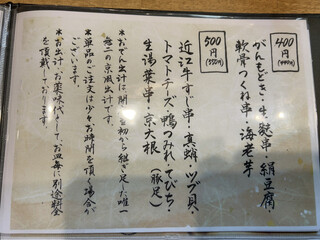 400円(440円)
がんもどき・生麩串・絹豆腐
軟骨つくね串・海老芋
500円(550円)
近江牛すじ串・真蛸・ツブ貝・
トマトチーズ・鴨つみれ・てびち・
(豚足)
生湯葉串・京大根
＊おでん出汁は開店当初から継ぎ足した唯一
無二の京風出汁です。
＊単品のご注文は少々お時間を頂く場合が
ございます。
＊お出汁、お薬味代としてお皿毎に別途料金
を頂戴しております。